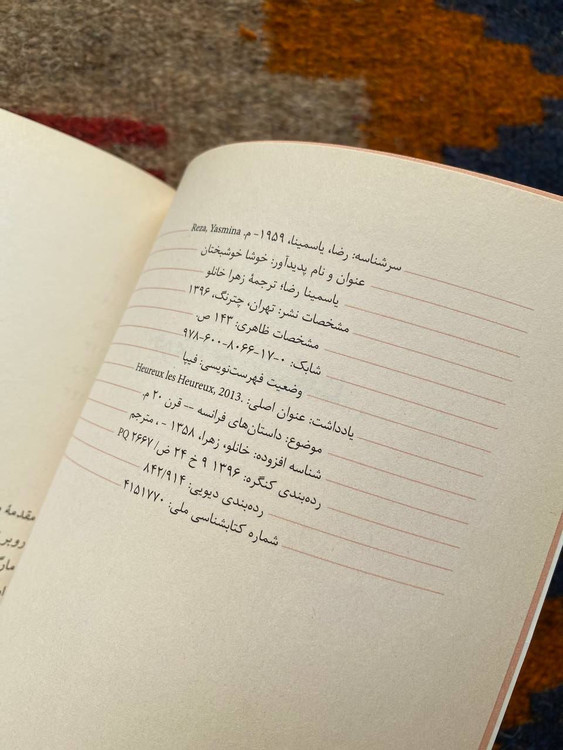 سرشناسه: رضا، یاسمینا، ۱۹۵۹- م. Reza, Yasmina
عنوان و نام پدیدآور: خوشا خوشبختان
یاسمینا رضا؛ ترجمهٔ زهرا خانلو
مشخصات نشر: تهران، چترنگ، ۱۳۹۶
مشخصات ظاهری: ۱۴۳ ص.
شابک: ۰-۱۷-۸۰۶۶-۶۰۰-۹۷۸
وضعیت فهرست‌نویسی: فیپا
یادداشت: عنوان اصلی: Heureux les Heureux, 2013.
موضوع: داستان‌های فرانسه — قرن ۲۰ م.
شناسه افزوده: خانلو، زهرا، ۱۳۵۸ - ، مترجم
رده‌بندی کنگره: ۱۳۹۶ ۹ خ ۲۴ ض/ PQ ۲۶۶۷
رده‌بندی دیویی: ۸۴۲/۹۱۴
شماره کتابشناسی ملی: ۴۱۵۱۷۷۰
مقدمهٔ